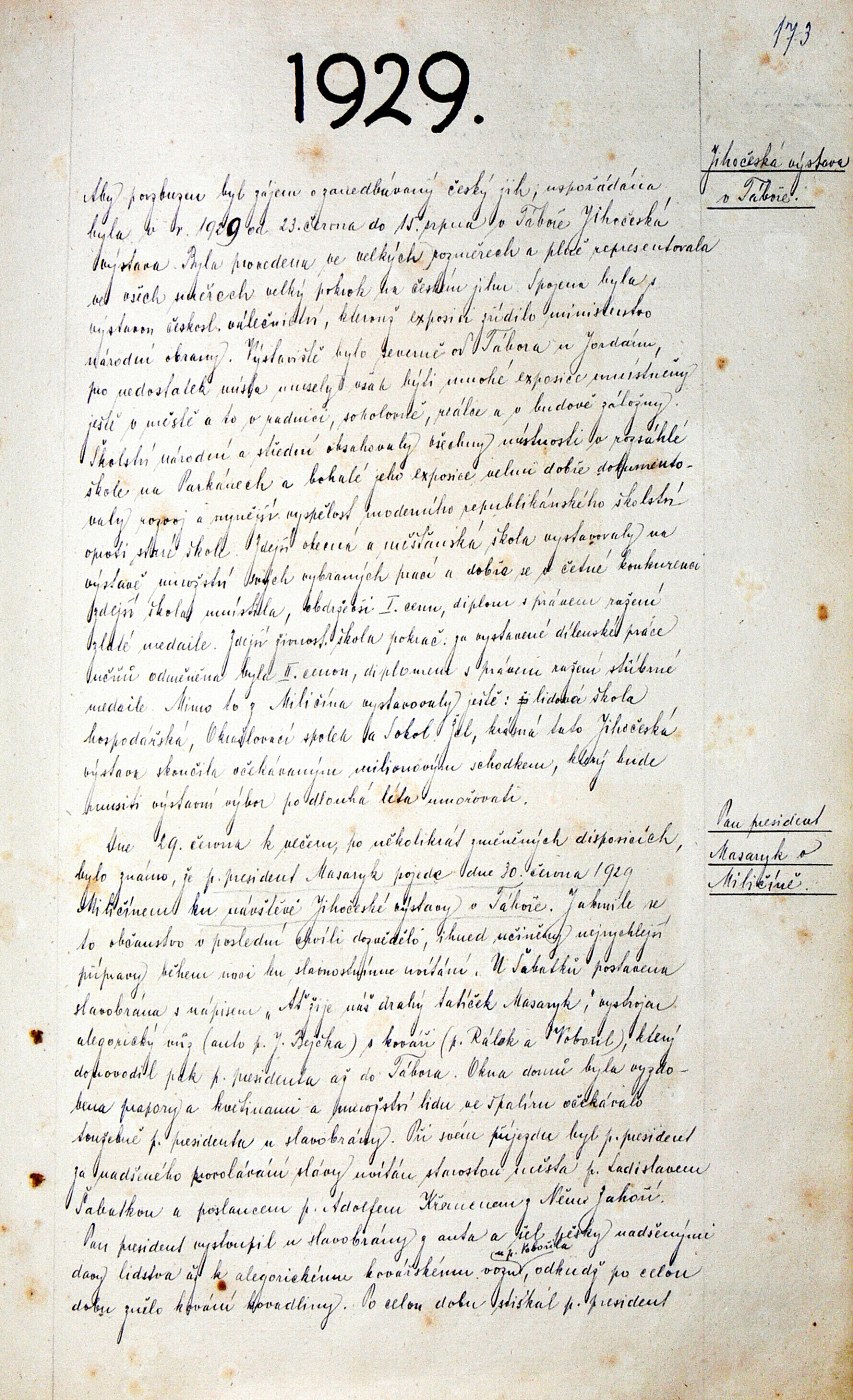 173
1929.
Jihočeská výstava
v Táboře.
Aby povzbuzen byl zájem o zanedbávaný český jih, uspořádána
byla v r. 1929 od 23. června do 15. srpna v Táboře Jihočeská
výstava. Byla provedena ve velkých rozměrech a plně representovala
ve všech směrech velký pokrok na českém jihu. Spojena byla s
výstavou českosl. válečnictví, kterouž exposici zřídilo ministerstvo
národní obrany. Výstaviště bylo severně od Tábora u Jordánu,
pro nedostatek místa musely však býti mnohé exposice umístěny
ještě v městě a to v radnici, sokolovně, reálce a v budově záložny.
Školství národní a střední obsahovaly všechny místnosti v rozsáhlé
škole na Parkánech a bohaté jeho exposice velmi dobře dokumento-
valy rozvoj a nynější vyspělost moderního republikánského školství
oproti staré škole. Zdejší obecná a měšťanská škola vystavovaly na
výstavě množství svých vybraných prací a dobře se v četné konkurenci
zdejší škola umístila, obdrževši I. cenu, diplom s právem ražení
zlaté medaile. Zdejší živnost. škola pokrač. za vystavené dílenské práce
učňů odměněna byla II. cenou, diplomem s právem ražení stříbrné
medaile. Mimo to z Miličína vystavovaly ještě: lidová škola
hospodářská, Okrašlovací spolek a Sokol. Žel, krásná tato Jihočeská
výstava skončila očekávaným milionovým schodkem, který bude
musiti výstavní výbor po dlouhá léta umořovati.
Pan president
Masaryk v
Miličíně.
Dne 29. června k večeru, po několikrát změněných disposicích,
bylo známo, že p. president Masaryk pojede dne 30. června 1929
Miličínem ku návštěvě Jihočeské výstavy v Táboře. Jakmile se
to občanstvo v poslední chvíli dozvědělo, ihned učiněny nejrychlejší
přípravy během noci ku slavnostnímu uvítání. U Šabatků postavena
slavobrána s nápisem „Ať žije náš drahý tatíček Masaryk", vystrojen
alegorický vůz (auto p. J. Bejčka) s kováři (p. Rálek a Vobořil), který
doprovodil pak p. presidenta až do Tábora. Okna domů byla vyzdo-
bena prapory a květinami a množství lidu ve špalíru očekávalo
toužebně p. presidenta u slavobrány. Při svém příjezdu byl p. president
za nadšeného provolávání slávy uvítán starostou města p. Ladislavem
Šabatkou a poslancem p. Adolfem Křemenem z Něm. Zahoří.
Pan president vystoupil u slavobrány z auta a šel pěšky nadšenými
davy lidstva až k alegorickému kovářskému vozu u p. Vobořila, odkudž po celou
dobu znělo kování kovadliny. Po celou dobu stiskal p. president